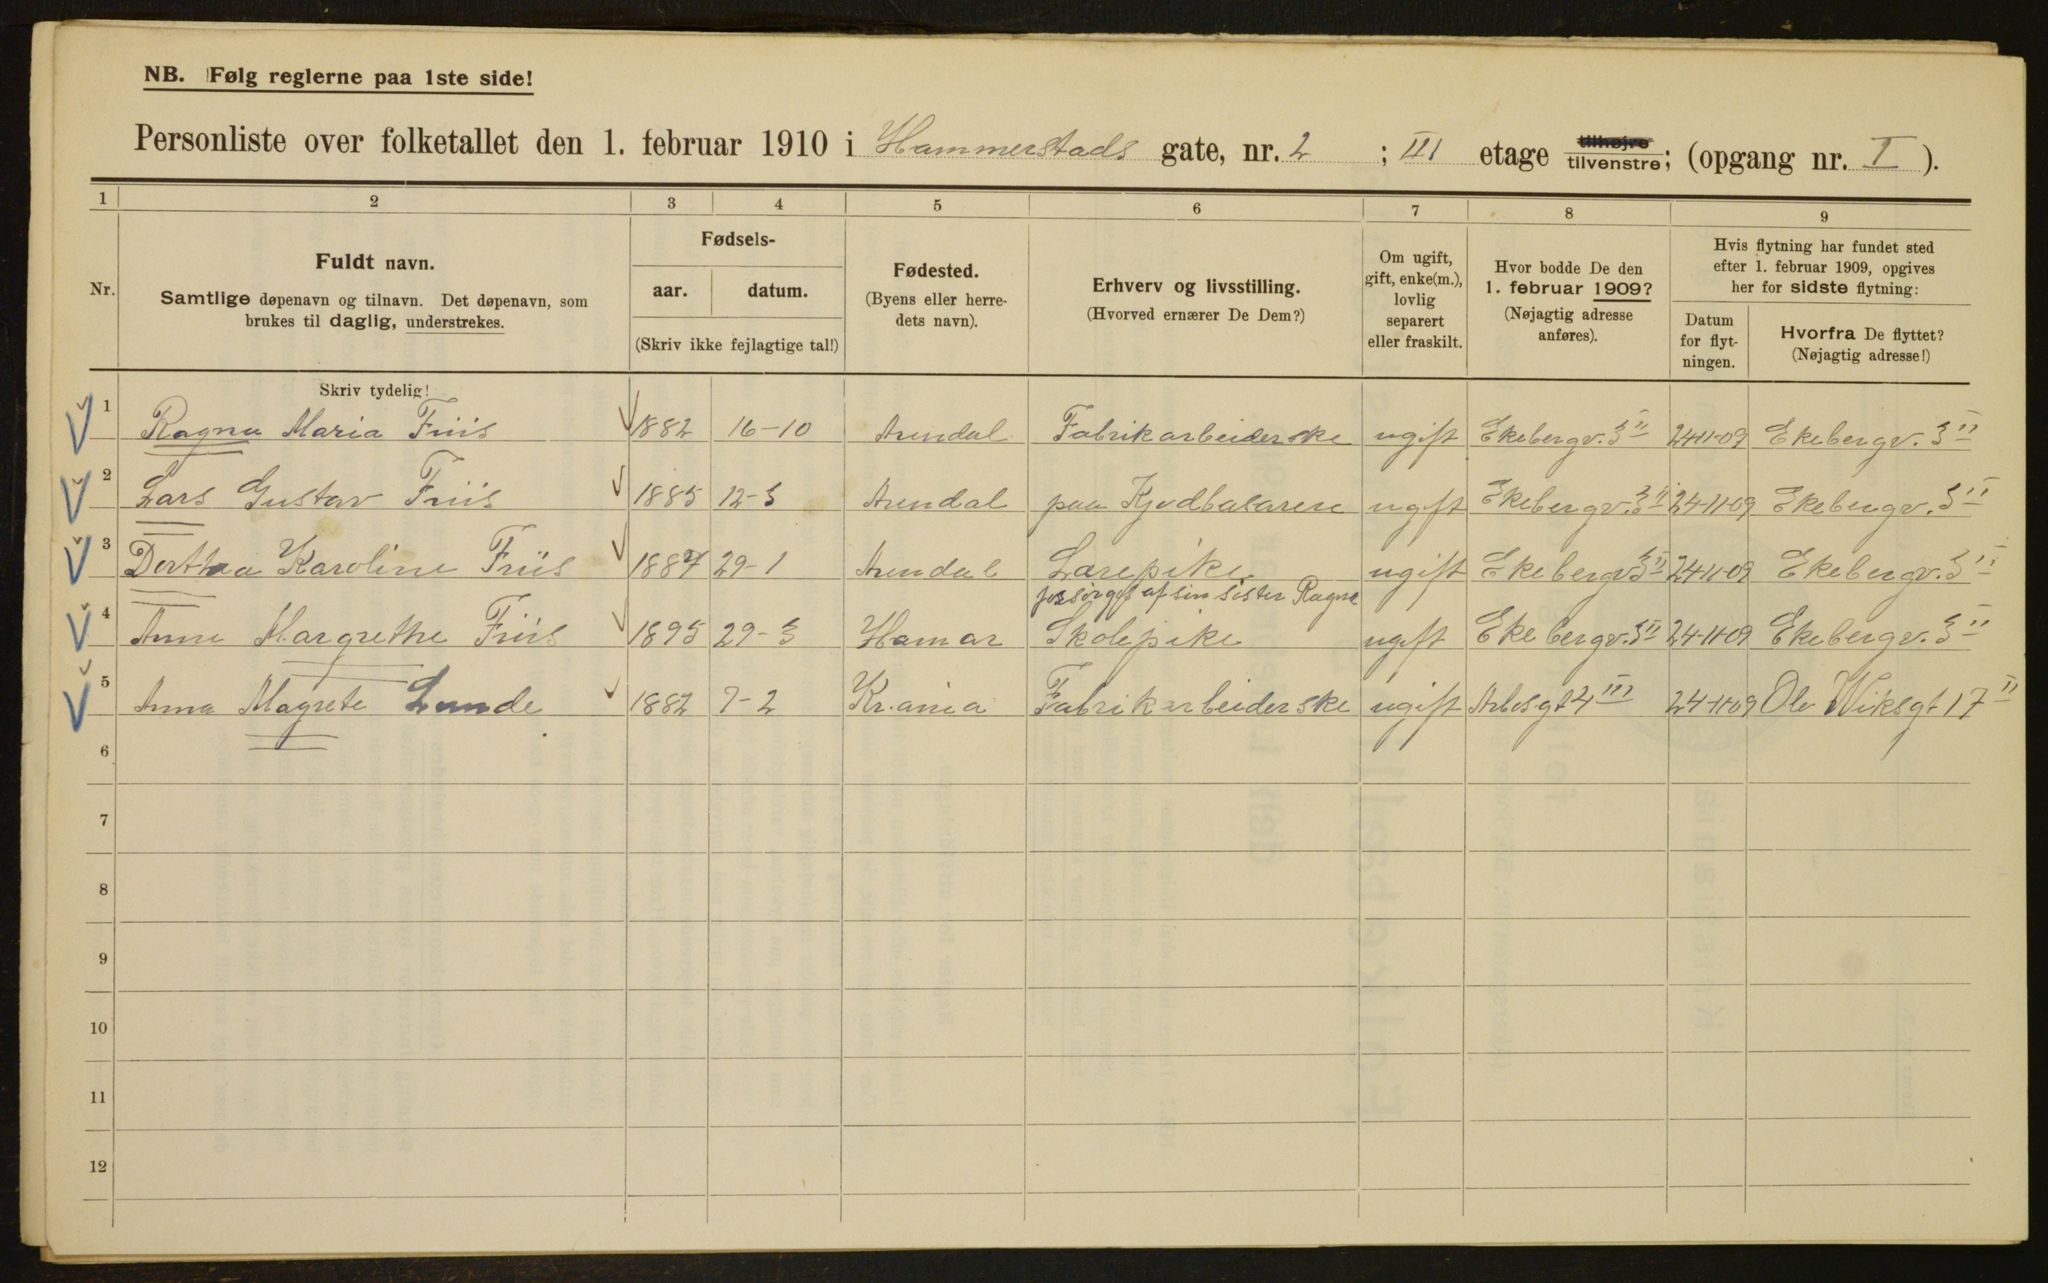 NB. Følg reglerne paa 1ste side!
Personliste over folketallet den 1. februar 1910 i Hammerstads gate, nr. 2 ; III etage tilhøjre tilvenstre; (opgang nr. I ).
1 2 3 4 5 6 7 8 9
Nr.
Fuldt navn.
Samtlige døpenavn og tilnavn. Det døpenavn, som
brukes til daglig, understrekes.
Fødsels-
aar. datum.
(Skriv ikke fejlagtige tal!)
Fødested.
(Byens eller herre-
dets navn).
Erhverv og livsstilling.
(Hvorved ernærer De Dem?)
Om ugift,
gift, enke(m.),
lovlig
separert
eller fraskilt.
Hvor bodde De den
1. februar 1909?
(Nøjagtig adresse
anføres).
Hvis flytning har fundet sted
efter 1. februar 1909, opgives
her for sidste flytning:
Datum
for flyt-
ningen.
Hvorfra De flyttet?
(Nøjagtig adresse!)
Skriv tydelig!
1 Ragna Maria Friis 1882 16-10 Arendal Fabrikarbeiderske ugift Ekebergv. 3 II 24-11-09 Ekebergv. 3 II
2 Lars Gustav Friis 1885 12-3 Arendal paa Kjødbasarene ugift Ekebergv. 3 II 24-11-09 Ekebergv. 3 II
3 Dorthea Karoline Friis 1887 29-1 Arendal Lærepike ugift Ekebergv 3 II 24-11-09 Ekebergv. 3 II
forsørges af sin søster Ragna
4 Anne Margrethe Friis 1895 29-3 Hamar Skolepike ugift Ekebergv. 3 II 24-11-09 Ekebergv. 3 II
5 Anna Magrete Lunde 1882 7-2 Kr.ania Fabrikarbeiderske ugift Arbosgt 4 III 24-11-09 Ole Wiksgt 17 II
6
7
8
9
10
11
12